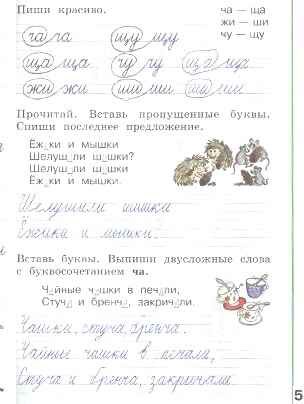 Пиши красиво.
ча — ща
жи — ши
чу — щу
ча ча щу щу
ща ща чу чу ща ща
жи жи ши ши ши ши
Прочитай. Вставь пропущенные буквы.
Спиши последнее предложение.
Ёж и ки и мышки
Шелушили шишки?
Шелушили шишки
Ёжики и мышки.
Шелушили шишки
Ёжики и мышки.
Вставь буквы. Выпиши двусложные слова
с буквосочетанием ча.
Чайные чашки в печали,
Стуча и бренча, закричали.
Чашки, стуча, бренча.
Чайные чашки в печали,
Стуча и бренча, закричали
5